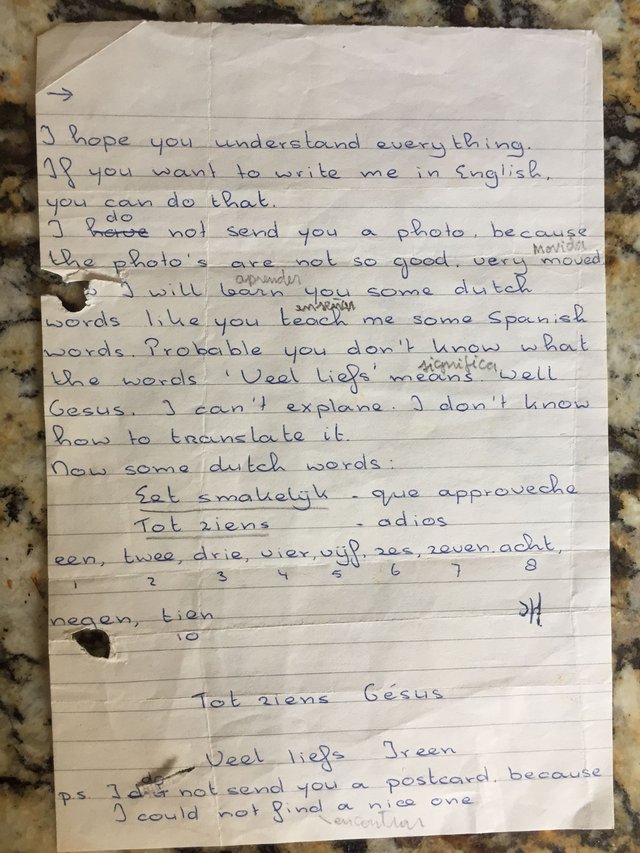 →
I hope you understand everything.
If you want to write me in English,
you can do that.
do
I have not send you a photo, because
Movida
the photo's are not so good, very moved
aprender
I will learn you some dutch
enseñar
words like you teach me some Spanish
words. Probable you don't know what
significa
the words 'Veel liefs' means. Well
Gesus. I can't explane. I don't know
how to translate it.
Now some dutch words:
Eet smakelijk - que approveche
Tot ziens - adios
een, twee, drie, vier, vijf, zes, zeven. acht,
1 2 3 4 5 6 7 8
negen, tien
10
Tot ziens Gésus
Veel liefs Ireen
do
p.s. I not send you a postcard, because
I could not find a nice one
encontrar